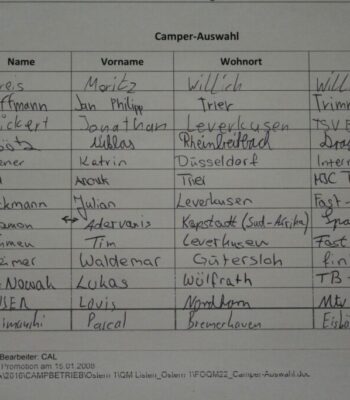 Camper-Auswahl
Name Vorname Wohnort
reis Moritz Willich Will
ffmann Jan Philipp Trier Trimm
ickert Jonathan Leverkusen TSV B
Niklas Rheinbreitbach Drag
ener Katrin Düsseldorf Intern
Anouk Trier MJC T
ckmann Julian Leverkusen Fast-
amon ↔ Adervanis Kapstadt (Süd-Afrika) Spa
mmen Tim Leverkusen Fast
eimer Waldemar Gütersloh fin
Nowak Lukas Wülfrath TB-
USEN Louis Nordhorn Mtv
imanski Pascal Bremerhaven Eisb
Bearbeiter: CAL
Promotion am 15.01.2008
2010\CAMPBETRIEB\Ostern 1\QM Listen_Ostern 1\FOQM22_Camper-Auswahl.doc